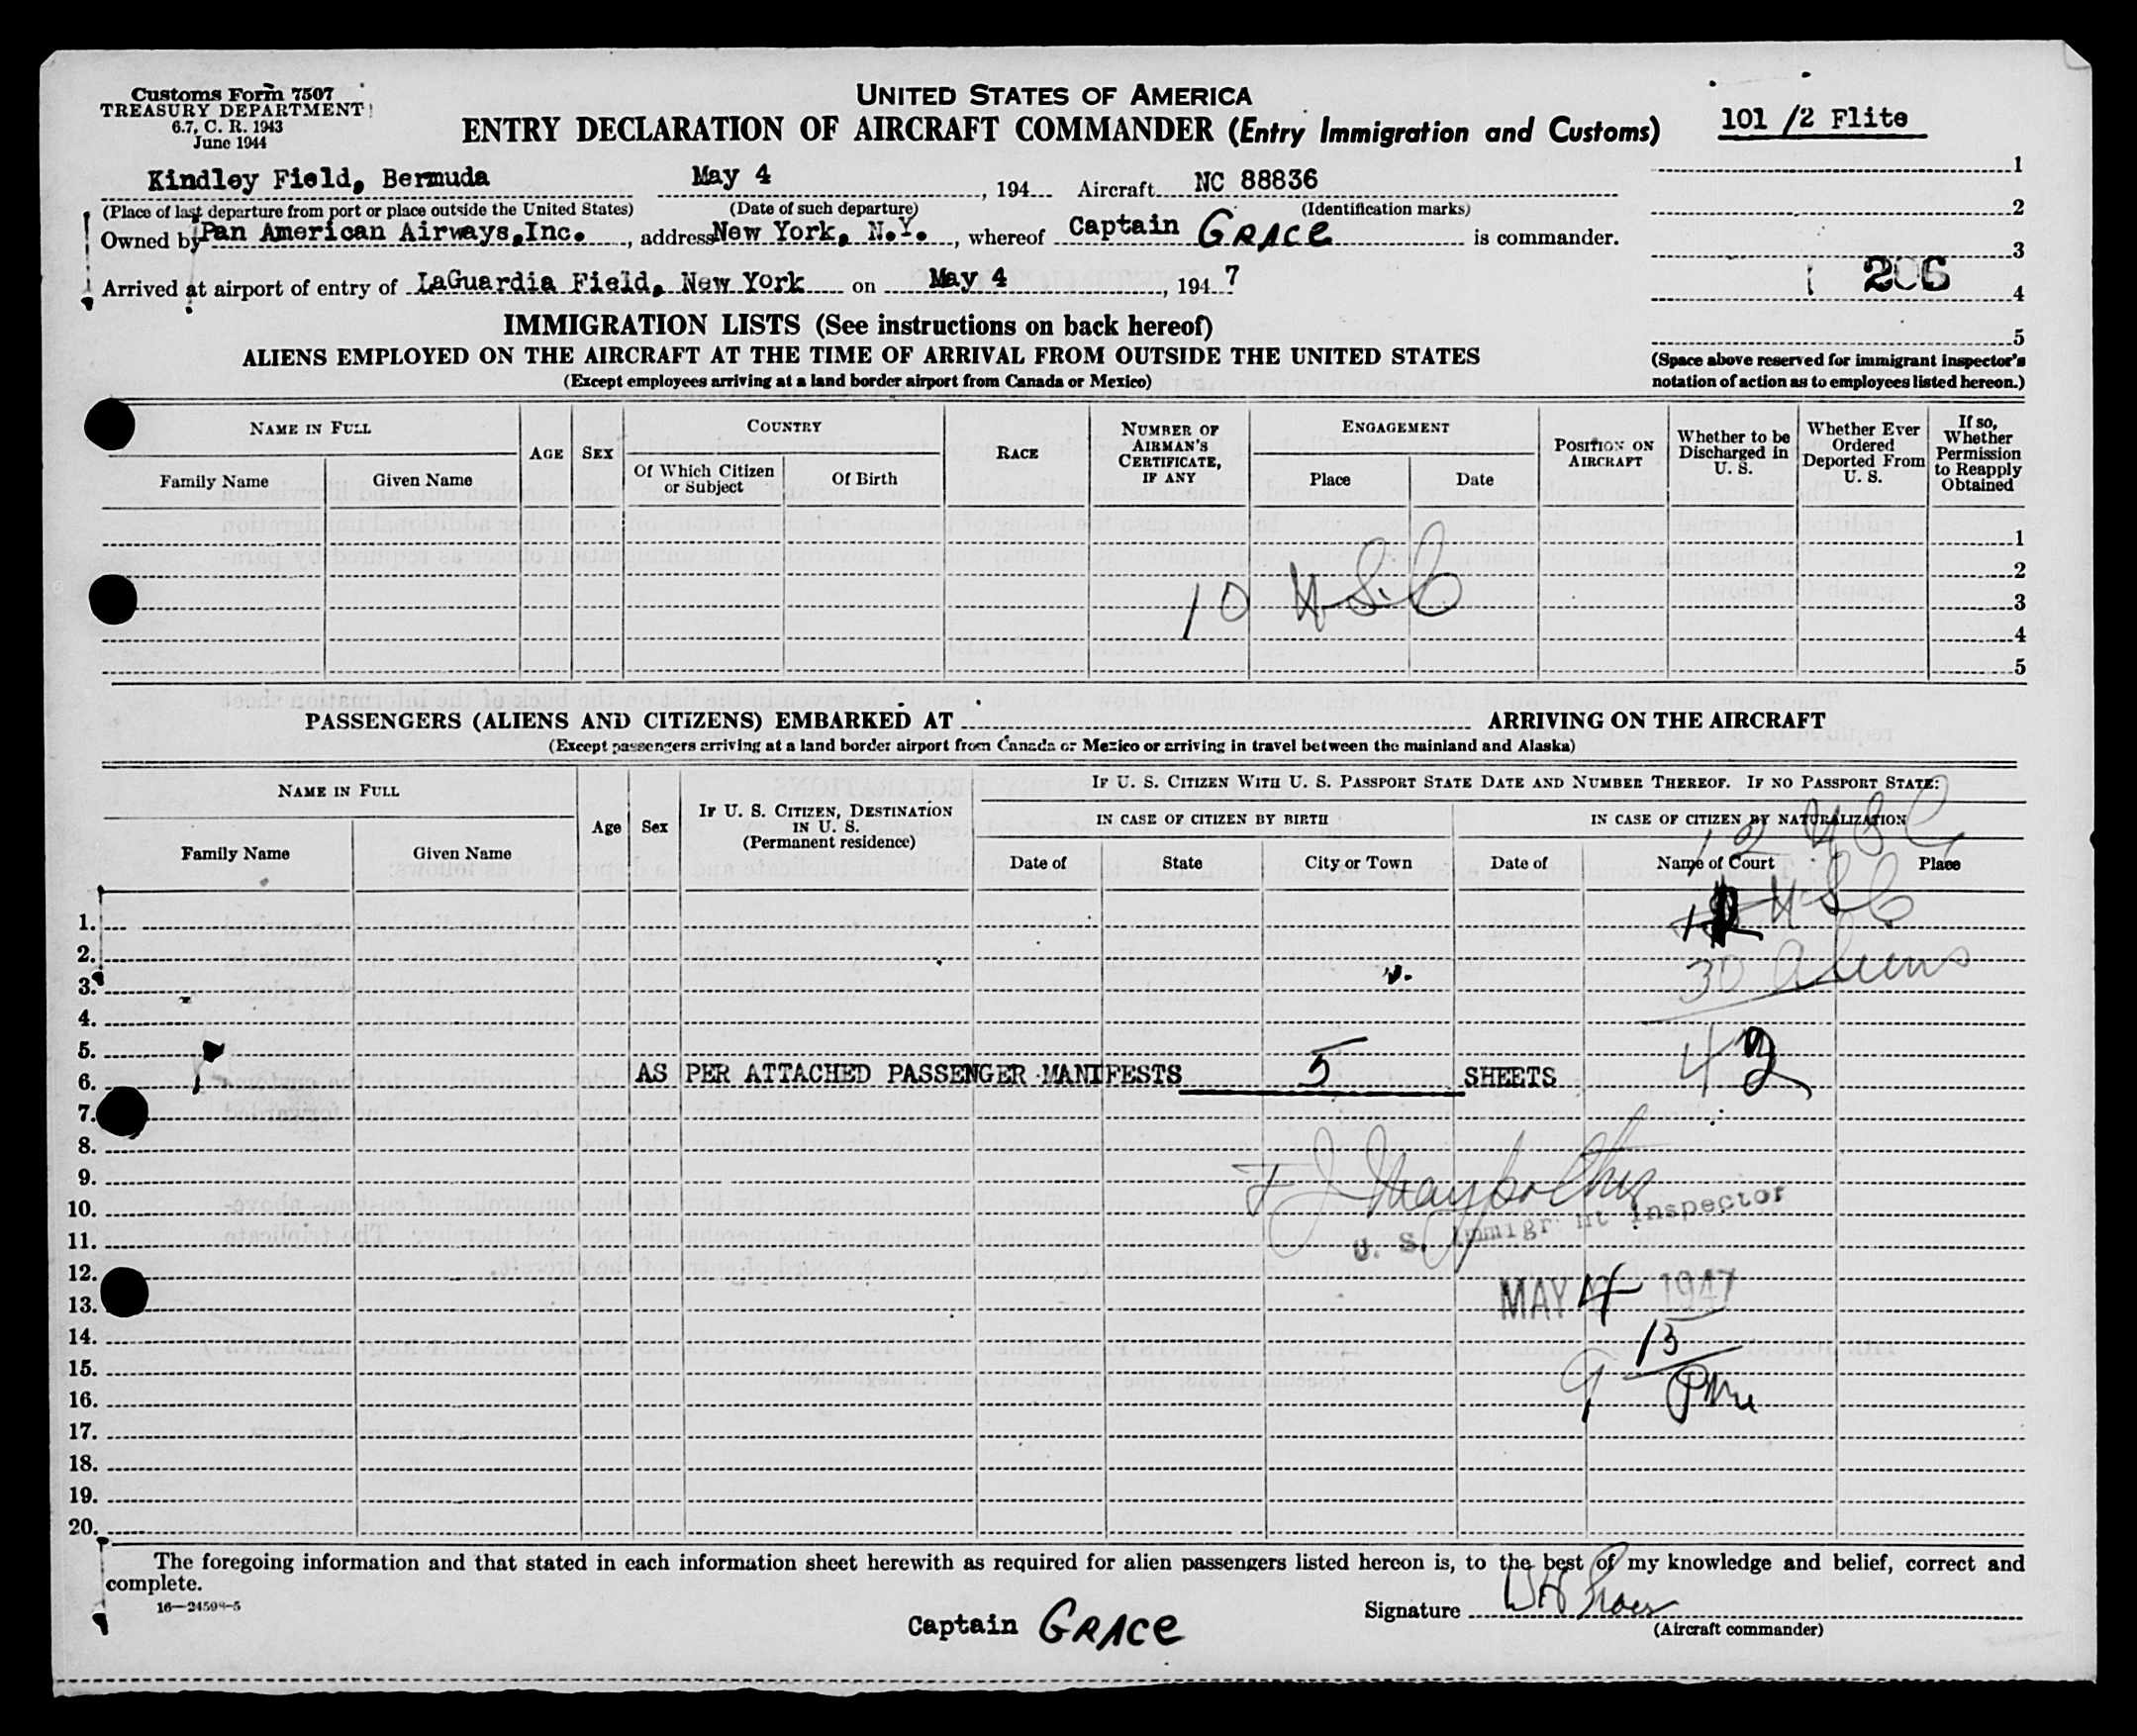 Customs Form 7507
TREASURY DEPARTMENT
6.7, C. R. 1943
June 1944
UNITED STATES OF AMERICA
ENTRY DECLARATION OF AIRCRAFT COMMANDER (Entry Immigration and Customs)
101 /2 Flite
Kindley Field, Bermuda May 4, 194 Aircraft NC 88836
(Place of last departure from port or place outside the United States) (Date of such departure) (Identification marks)
Owned by Pan American Airways, Inc., address New York, N.Y., whereof Captain GRACE is commander.
Arrived at airport of entry of LaGuardia Field, New York on May 4, 1947
1
2
3
206
4
5
(Space above reserved for immigrant inspector's
notation of action as to employees listed hereon.)
IMMIGRATION LISTS (See instructions on back hereof)
ALIENS EMPLOYED ON THE AIRCRAFT AT THE TIME OF ARRIVAL FROM OUTSIDE THE UNITED STATES
(Except employees arriving at a land border airport from Canada or Mexico)
NAME IN FULL
Family Name Given Name
AGE SEX
COUNTRY
Of Which Citizen or Subject Of Birth
RACE
NUMBER OF AIRMAN'S CERTIFICATE, IF ANY
ENGAGEMENT
Place Date
POSITION ON AIRCRAFT
Whether to be Discharged in U. S.
Whether Ever Ordered Deported From U. S.
If so, Whether Permission to Reapply Obtained
1
2
10 USC
3
4
5
PASSENGERS (ALIENS AND CITIZENS) EMBARKED AT ARRIVING ON THE AIRCRAFT
(Except passengers arriving at a land border airport from Canada or Mexico or arriving in travel between the mainland and Alaska)
NAME IN FULL
Family Name Given Name
Age Sex
IF U. S. CITIZEN, DESTINATION IN U. S.
(Permanent residence)
IF U. S. CITIZEN WITH U. S. PASSPORT STATE DATE AND NUMBER THEREOF. IF NO PASSPORT STATE:
IN CASE OF CITIZEN BY BIRTH IN CASE OF CITIZEN BY NATURALIZATION
12 USC
Date of State City or Town Date of Name of Court Place
1. USC
2. 30 Aliens
3.
4.
5.
6. AS PER ATTACHED PASSENGER MANIFESTS 5 SHEETS 42
7.
8.
9.
10.
11. U. S. Immigrant Inspector
12.
13. MAY 4 1947
14.
15. 9 13
16. PM
17.
18.
19.
20.
The foregoing information and that stated in each information sheet herewith as required for alien passengers listed hereon is, to the best of my knowledge and belief, correct and
complete.
16—24598-5
Captain GRACE
Signature
(Aircraft commander)